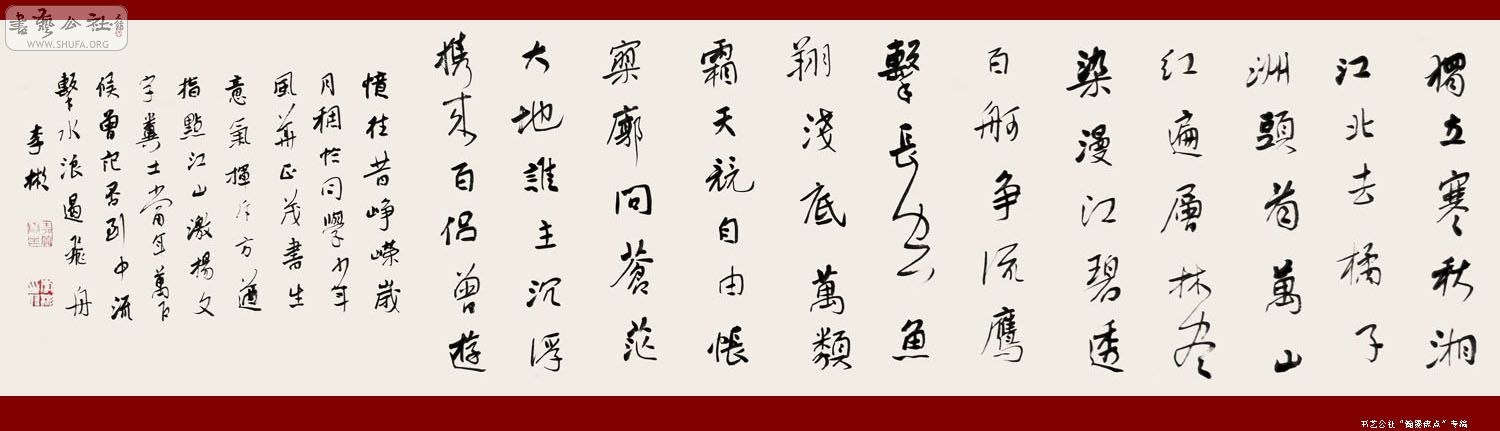 書藝公社
WWW.SHUFA.ORG
獨立寒秋湘
江北去橘子
洲頭看萬山
红遍層林尽
染漫江碧透
百舸争流鹰
擊長空魚
翔淺底萬類
霜天競自由悵
寥廓問蒼茫
大地誰主沉浮
携來百侣曾遊
憶往昔崢嶸歲
月稠恰同學少年
風華正茂書生
意氣揮斥方遒
指點江山激揚文
字糞土當年萬户
侯曾記否到中流
擊水浪遏飛舟
李彬
书艺公社“翰墨焦点”专稿